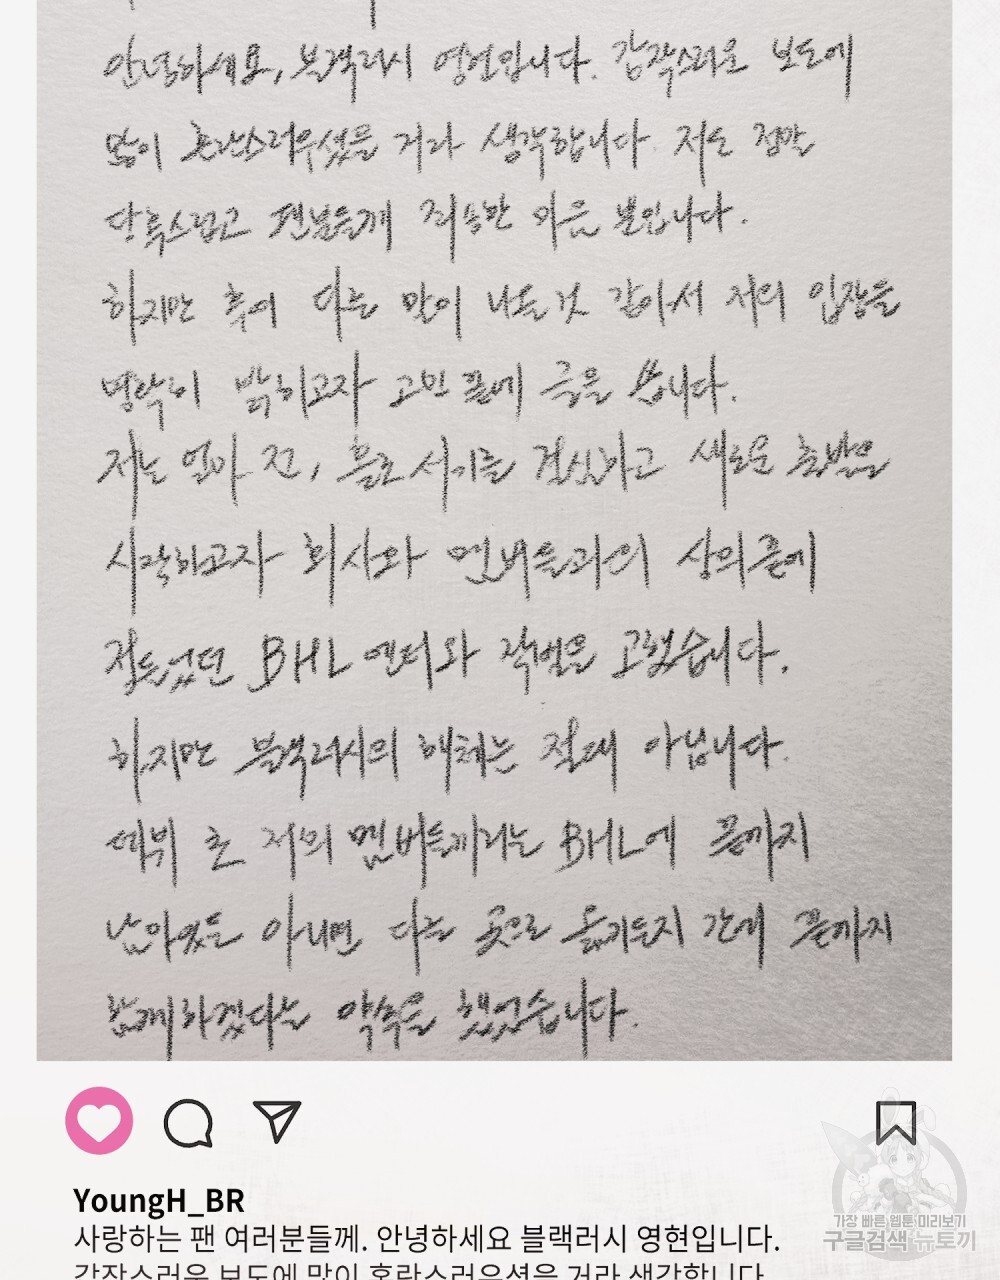 안녕하세요, 블랙러시 영현입니다. 갑작스러운 보도에
많이 혼란스러우셨을 거라 생각합니다. 저도 정말
당혹스럽고 팬분들께 죄송한 마음 뿐입니다.
하지만 후에 다른 말이 나올 것 같아서 저의 입장을
명확히 밝히고자 고민 끝에 글을 씁니다.
저는 얼마 전, 홀로서기를 결심하고 새로운 출발을
시작하고자 회사와 멤버들과의 상의 끝에
정들었던 BHL 엔터와 작별을 고했습니다.
하지만 블랙러시의 해체는 절대 아닙니다.
데뷔 초 저의 멤버들끼리는 BHL에 끝까지
남아있든 아니면 다른 곳으로 옮기든지 간에 끝까지
함께하겠다는 약속을 했었습니다.
YoungH_BR
사랑하는 팬 여러분들께. 안녕하세요 블랙러시 영현입니다.
갑작스러운 보도에 많이 혼란스러우셨을 거라 생각합니다.
가장 빠른 웹툰 미리보기
구글검색 뉴토끼